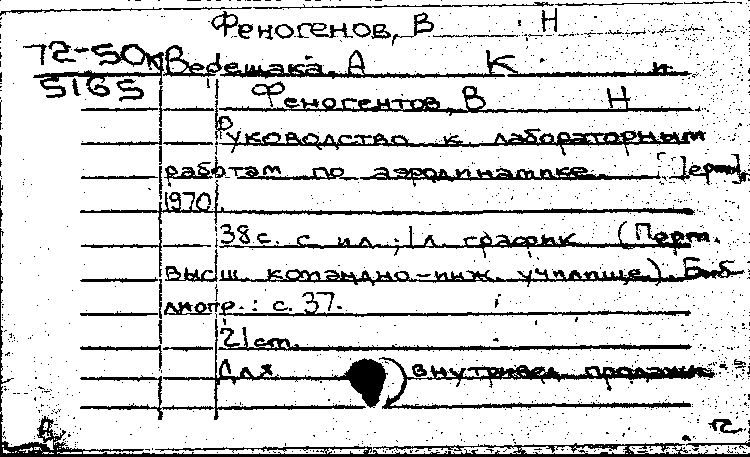 Феногенов, В Н
72-50к Ведешака, А К и
5165 Феногентов, В Н
Руководство к лабораторным
работам по аэродинамике. [Перм],
1970.
38 с. с ил.; 1 л. график (Перм.
высш. командно-инж. училище). Биб-
лиогр.: с. 37.
21 см.
Для внутривед. продажи